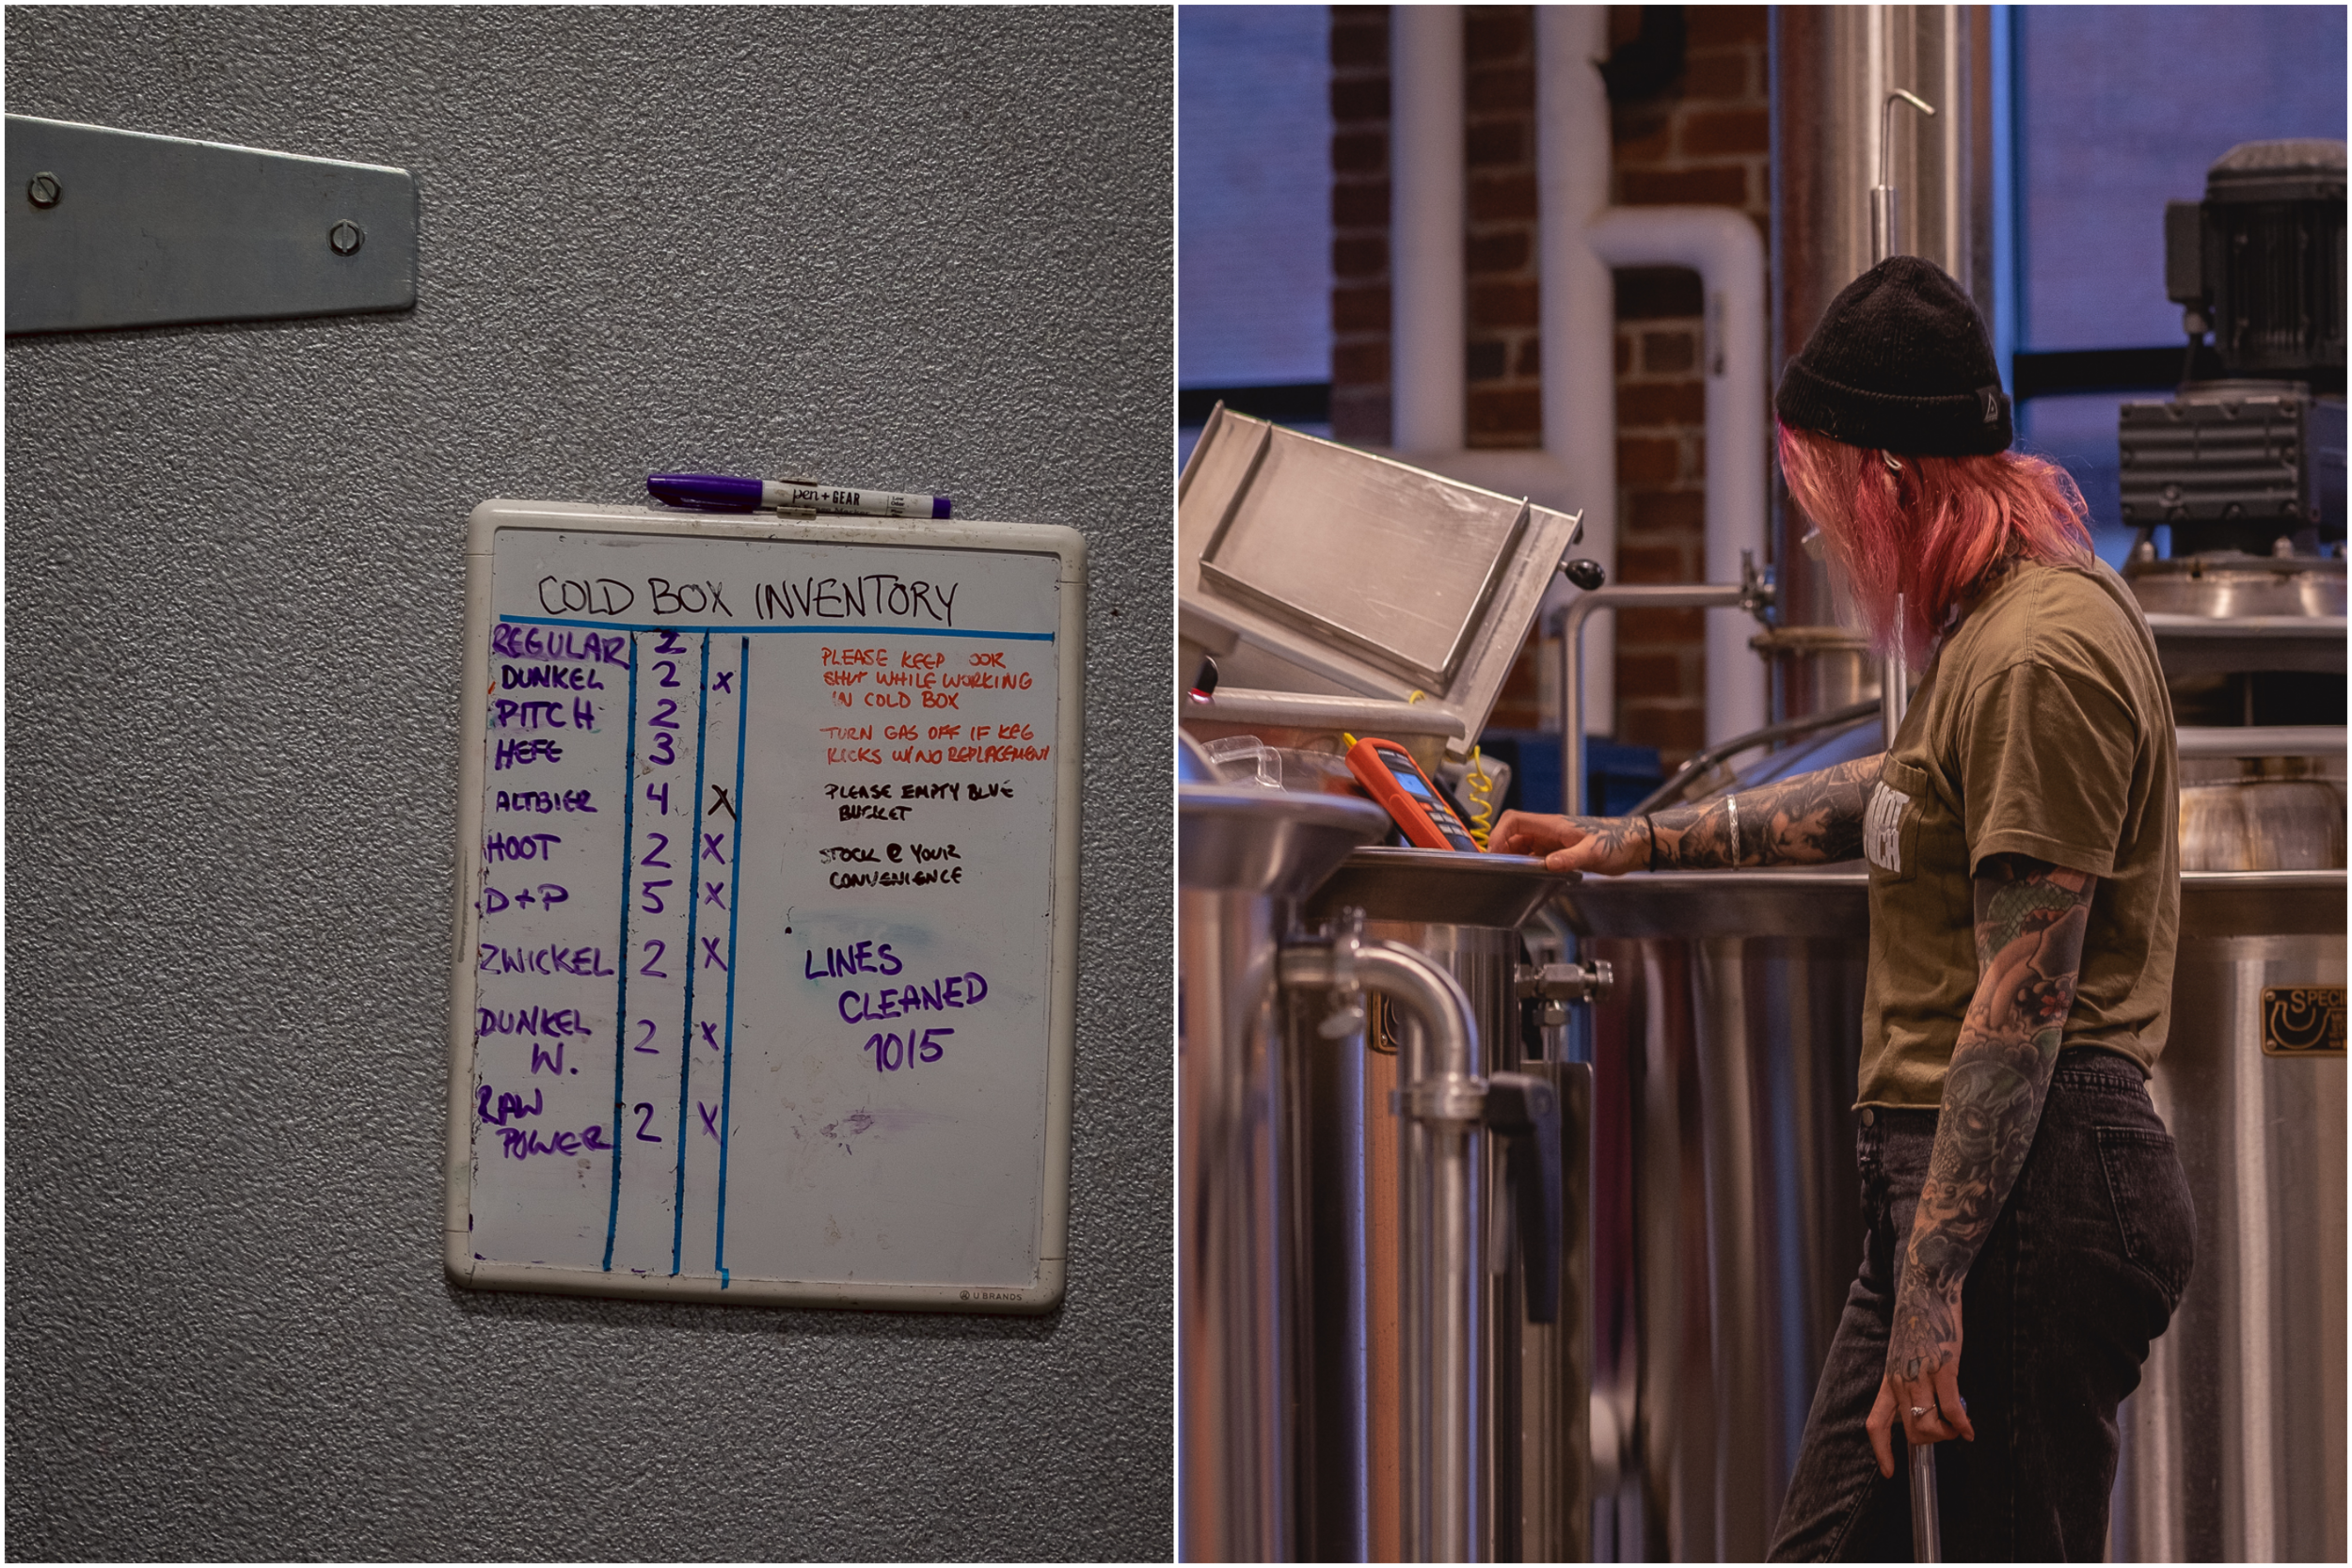 pen + GEAR
COLD BOX INVENTORY
REGULAR 2
DUNKEL 2 X
PITCH 2
HEFE 3
ALTBIER 4 X
HOOT 2 X
D+P 5 X
ZWICKEL 2 X
DUNKEL W. 2 X
RAW POWER 2 X
PLEASE KEEP OOR
SHUT WHILE WORKING
IN COLD BOX
TURN GAS OFF IF KEG
KICKS W/NO REPLACEMENT
PLEASE EMPTY BLUE
BUCKET
STOCK @ YOUR
CONVENIENCE
LINES
CLEANED
10/5
U BRANDS
SPECI